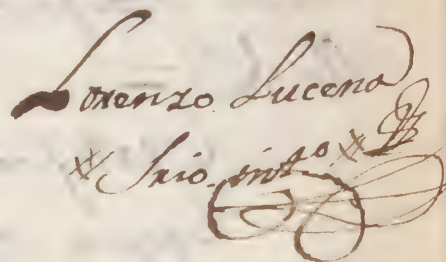 Lorenzo Lucena
Srio. int.o